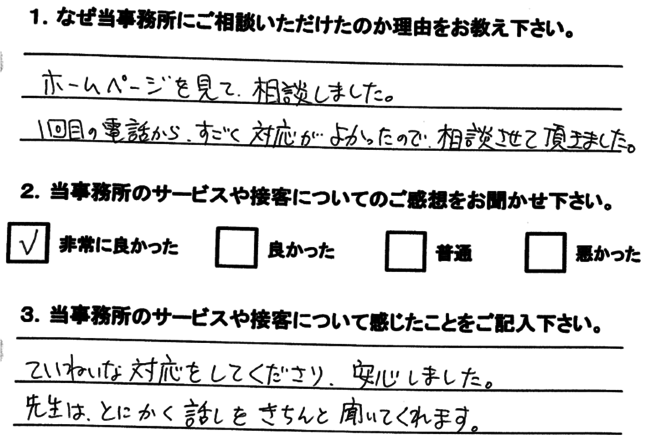 1. なぜ当事務所にご相談いただけたのか理由をお教え下さい。
ホームページを見て、相談しました。
1回目の電話から、すごく対応がよかったので、相談させて頂きました。
2. 当事務所のサービスや接客についてのご感想をお聞かせ下さい。
✓ 非常に良かった 良かった 普通 悪かった
3. 当事務所のサービスや接客について感じたことをご記入下さい。
ていねいな対応をしてくださり、安心しました。
先生は、とにかく話しをきちんと聞いてくれます。